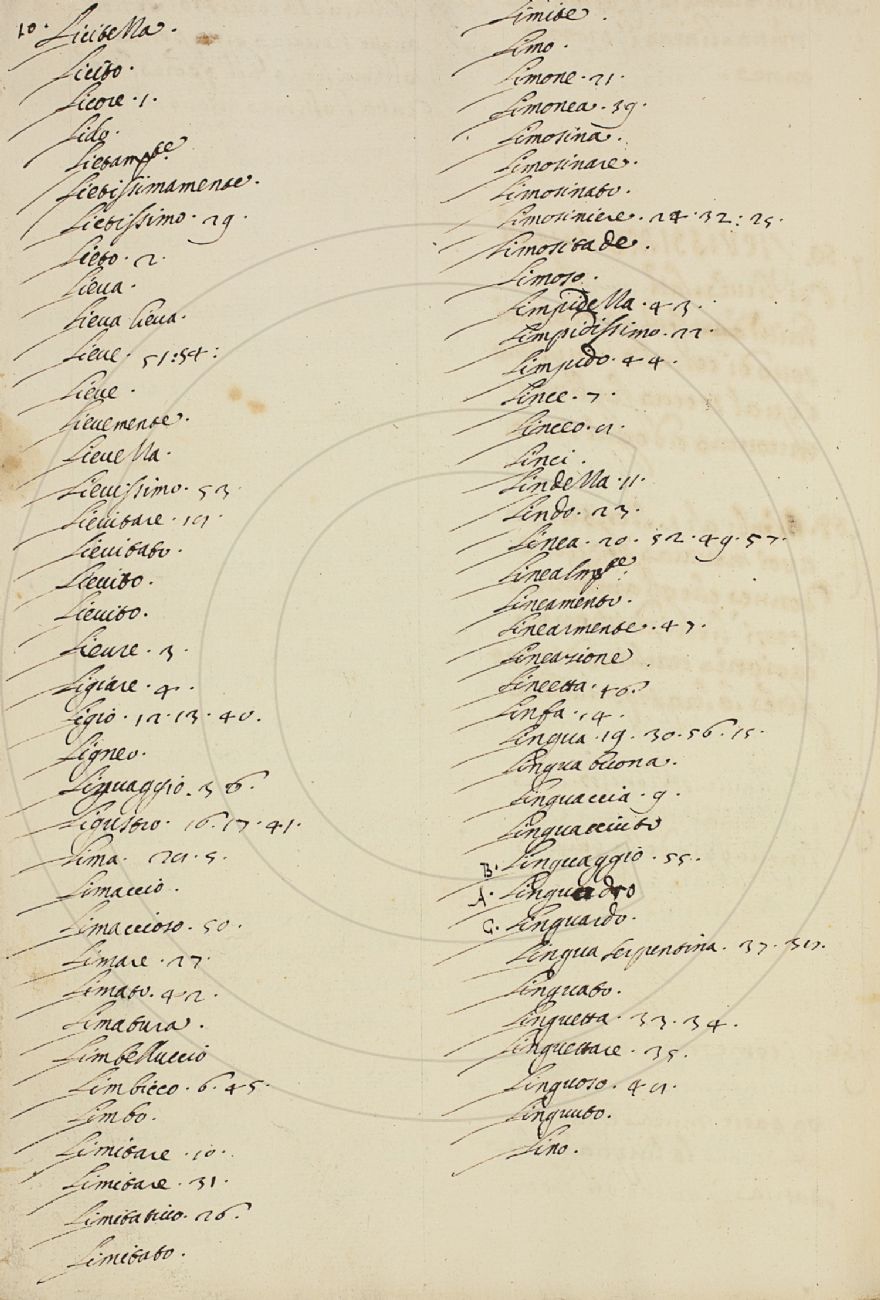 10.
Licitezza.
Licito.
Licore. 1.
Lido.
Lietam.te
Lietissimamente.
Lietissimo. 29.
Lieto. 2.
Lieva.
Lieva lieva.
Lieve. 51:54:
Lieve.
Lievemente.
Lievezza.
Lievissimo. 53.
Lievitare.
Lievitato.
Lievito.
Lievito.
Lievre. 3.
Ligiare. 4.
Ligio. 12. 13. 40.
Ligneo.
Liguaggio. 38.
Ligustro. 16. 17. 41.
Lima. 5.
Limaccio.
Limaccioso. 50.
Limare. 27.
Limato. 42.
Limatura.
Limbelluccio
Limbicco. 6. 45.
Limbo.
Limitare. 10.
Limitare. 31.
Limitativo. 26.
Limitato.
Limite.
Limo.
Limone. 21.
Limonea. 39.
Limosina.
Limosinare.
Limosinato.
Limosiniere. 24. 32: 25.
Limositade.
Limoso.
Limpidezza. 43.
Limpidissimo. 22.
Limpido. 44.
Lince. 7.
Linceo.
Linci.
Lindezza. 11.
Lindo. 23.
Linea. 20. 52. 49. 57.
Linealm.te
Lineamento.
Linearmente. 47.
Lineazione.
Lineetta. 46.
Linfa. 14.
Lingua. 19. 30. 56. 15.
Lingua buona.
Linguaccia. 9.
Linguacciuto
B. Linguaggio. 55.
A. Linguadro
C. Linguardo.
Lingua serpentina. 37.
Linguato.
Linguetta. 33. 34.
Linguettare. 35.
Linguoso.
Linguuto.
Lino.